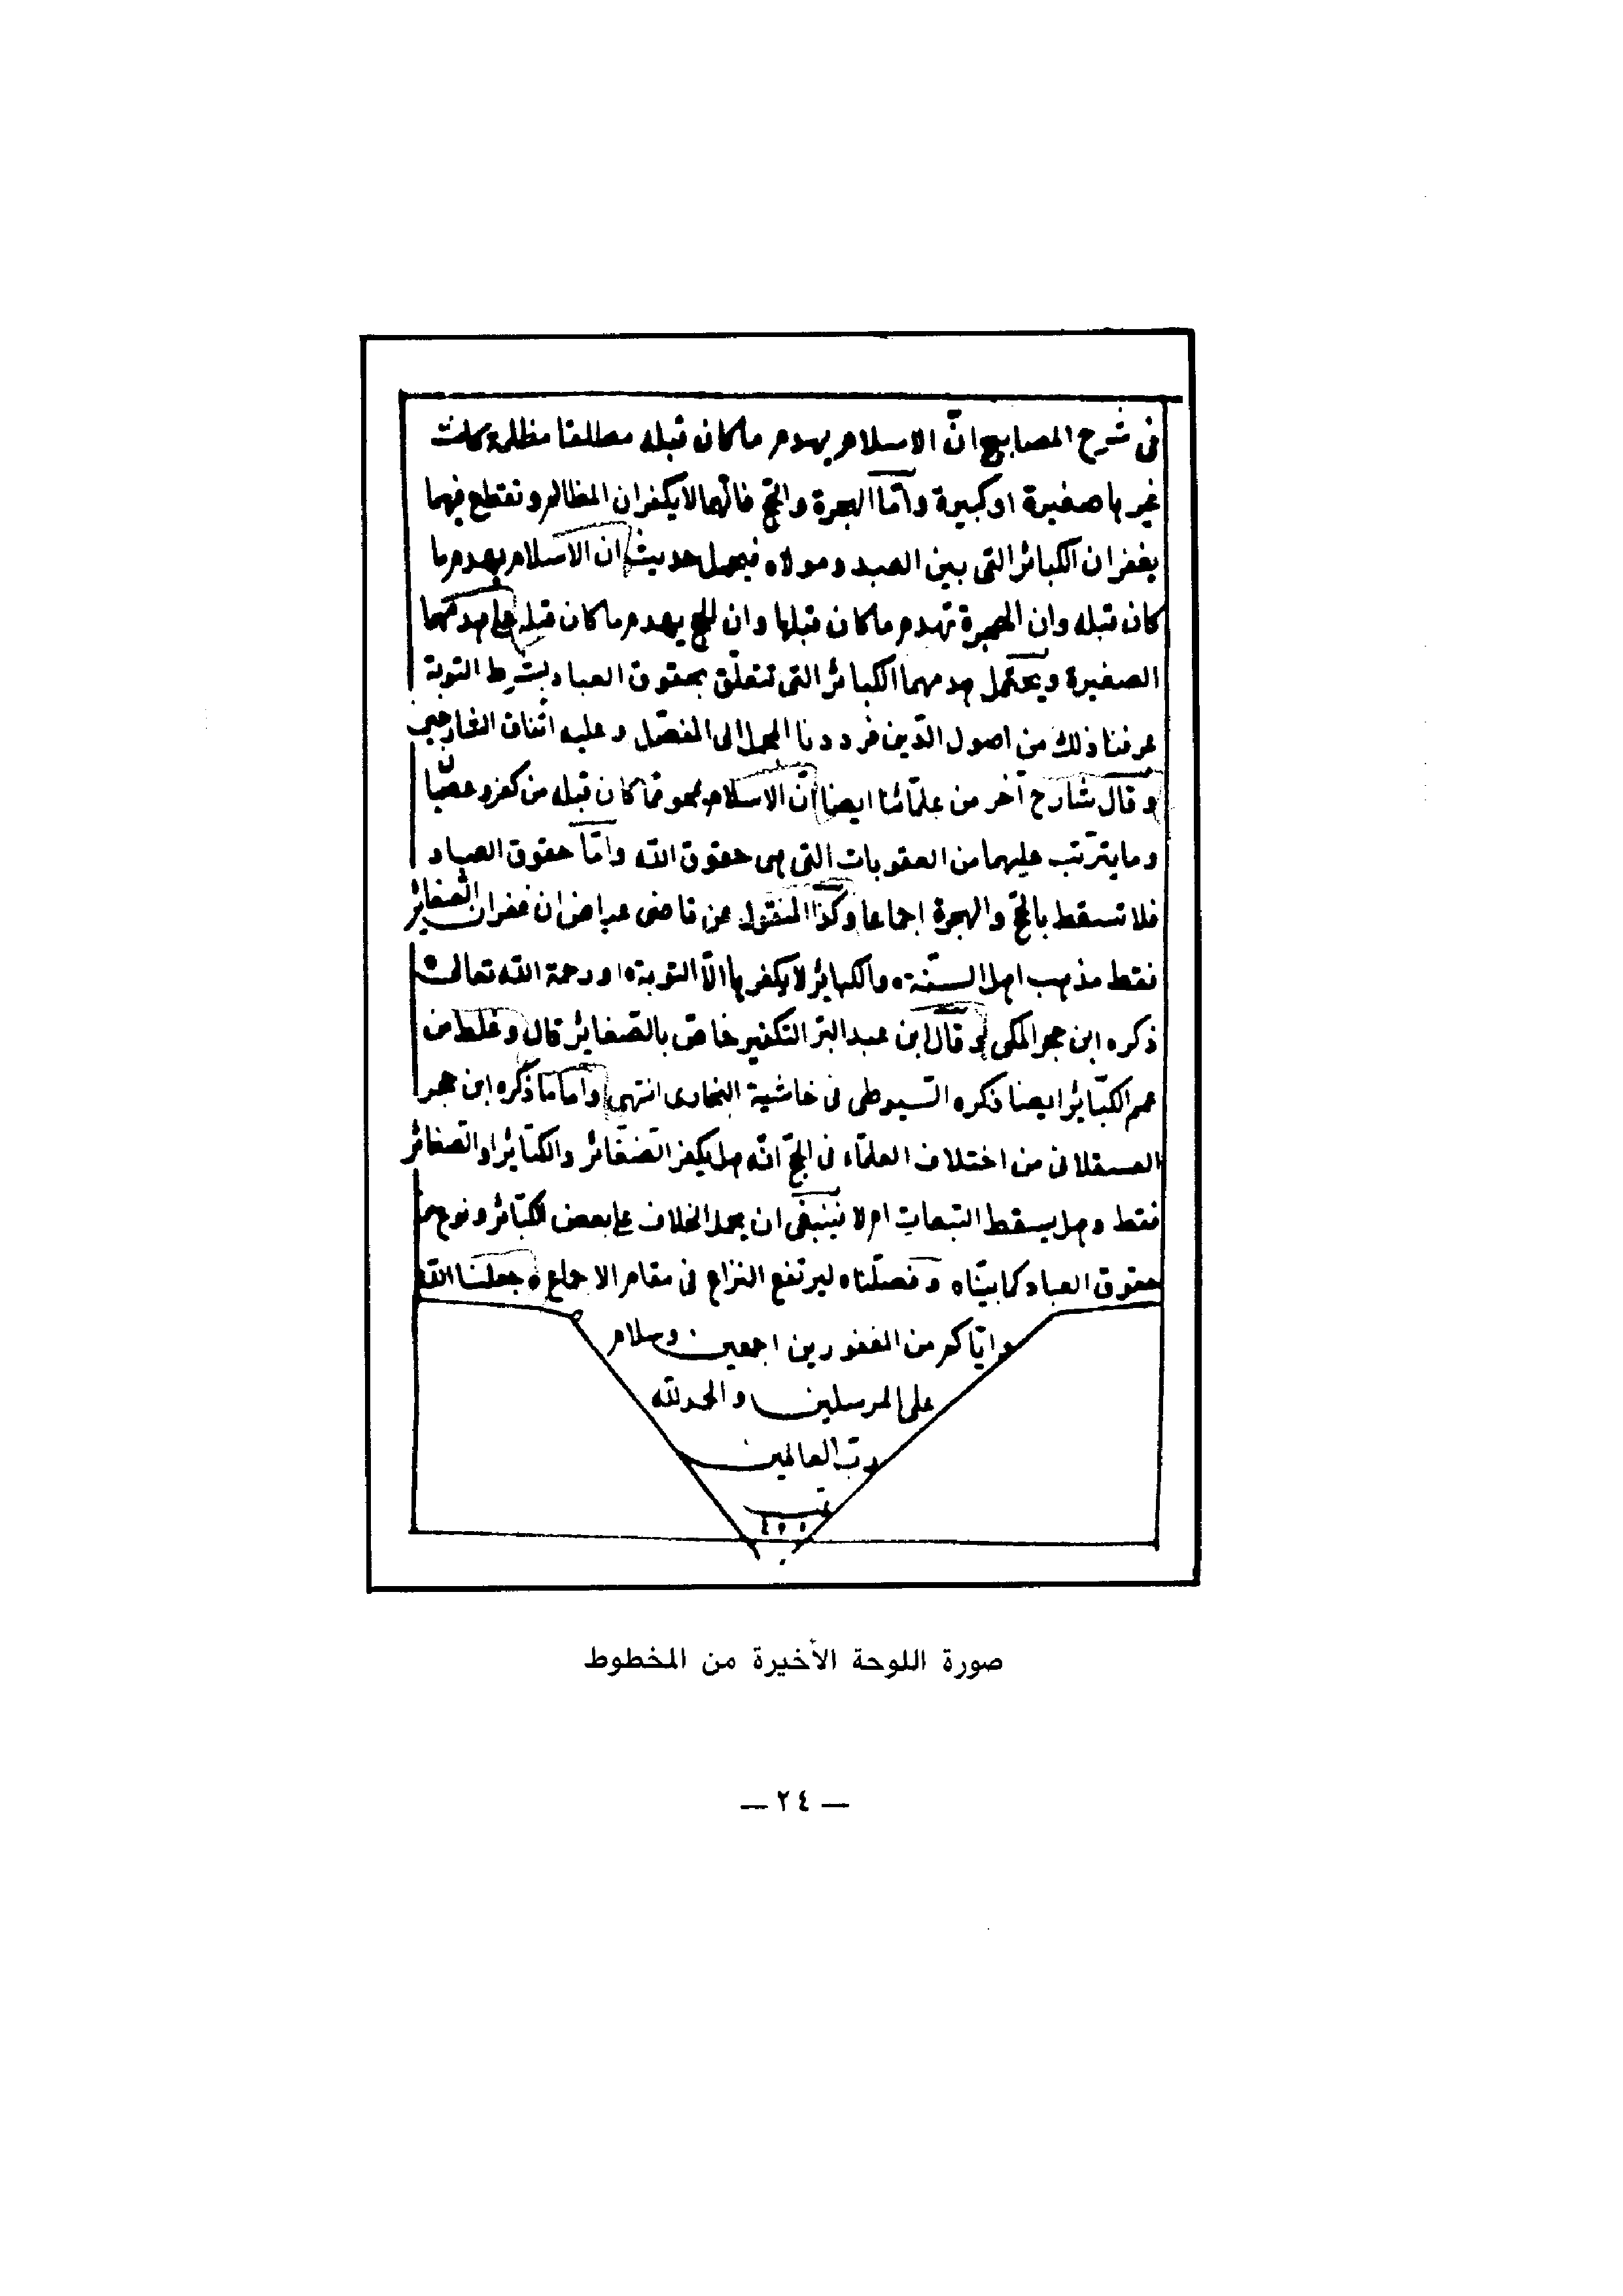 فى شرح المصابيح انّ الاسلام يهدم ماكان قبله مطلقا مظلمة كانت
غيرها صغيرة اوكبيرة وامّا الهجرة والحجّ فانّهما لا يكفران المظالم ونقطع فيهما
بغفران الكبائر التى بين العبد ومولاه فيحمل حديث ان الاسلام يهدم ما
كان قبله وان الهجرة تهدم ماكان قبلها وان الحج يهدم ماكان قبله على هدمهما
الصغيرة ويحتمل هدمهما الكبائر التى تتعلّق بحقوق العباد بشرط التوبة
عرفنا ذلك من اصول الدّين فرددنا المجمل الى المفصّل وعليه اتّفاق الشارحين
وقال شارح آخر من علمائنا ايضا انّ الاسلام يمحو ما كان قبله من كفر وعصيان
وما يترتّب عليهما من العقوبات التى هى حقوق الله وامّا حقوق العباد
فلا تسقط بالحجّ والهجرة اجماعا وكذا المنقول عن قاضى عياض ان غفران الصّغائر
فقط مذهب اهل السنّة والكبائر لا يكفرها الّا التوبة او رحمة الله تعالى
ذكره ابن حجر المكى وقال ابن عبد البرّ التكفير خاصّ بالصّغائر قال وغلط من
عمم الكبائر ايضا ذكره السّيوطى فى حاشية البخارى انتهى واما ما ذكره ابن حجر
العسقلانى من اختلاف العلماء فى الحجّ انّه هل يكفر الصّغائر والكبائر او الصّغائر
فقط وهل يسقط التبعات ام لا فينبغى ان يحمل الخلاف على بعض الكبائر ونوع من
حقوق العباد كما بيّنّاه وفصلّناه ليرتفع النزاع فى مقام الاجماع جعلنا الله
وايّاكم من المغفورين اجمعين وسلام
على المرسلين والحمد لله
ربّ العالمين
تمت
صورة اللوحة الأخيرة من المخطوط
— ٢٤ —